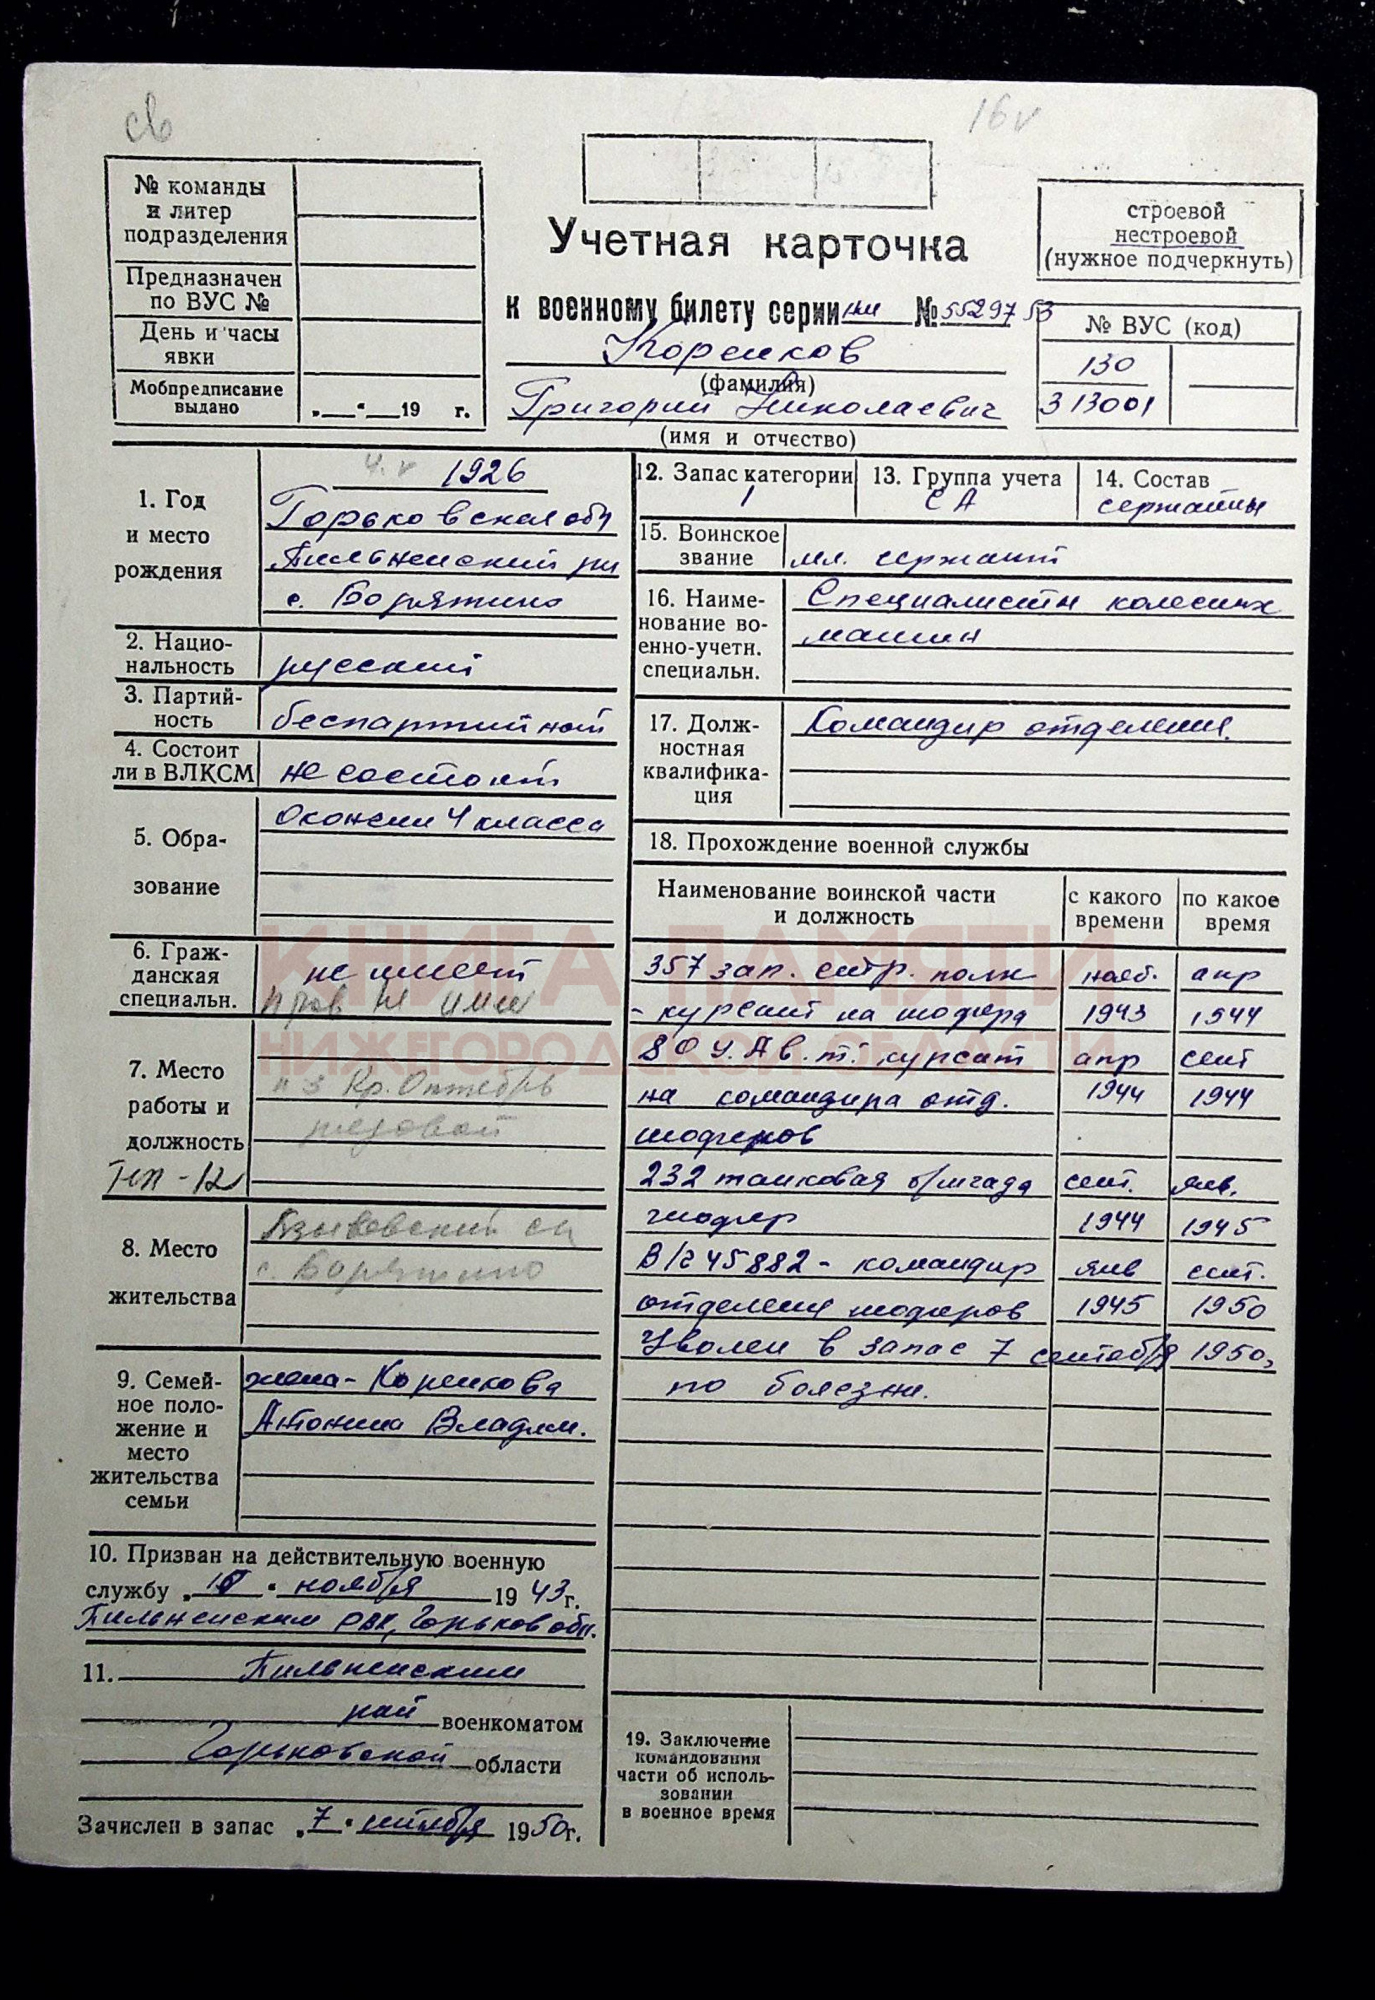 св
16 v
№ команды
и литер
подразделения
Предназначен
по ВУС №
День и часы
явки
Мобпредписание
выдано
„ “ 19 г.
Учетная карточка
к военному билету серии НИ № 5529753
Коренков
(фамилия)
Григорий Николаевич
(имя и отчество)
строевой
нестроевой
(нужное подчеркнуть)
№ ВУС (код)
130
313001
1. Год
и место
рождения
1926
Горьковская обл
Пильненский рн
с. Борятино
2. Нацио-
нальность
русский
3. Партий-
ность
беспартийный
4. Состоит
ли в ВЛКСМ
не состоит
5. Обра-
зование
Окончил 4 класса
6. Граж-
данская
специальн.
не имеет
прав не имеет
7. Место
работы и
должность
Кр. Октябрь
рядовой
Тел - 12
8. Место
жительства
Языковский с/с
с. Борятино
9. Семей-
ное поло-
жение и
место
жительства
семьи
жена - Коренкова
Антонина Владим.
10. Призван на действительную военную
службу „ “ ноября 1943 г.
Пильненским РВК, Горьков обл.
11. Пильненским
рай военкоматом
Горьковской области
Зачислен в запас „7“ сентября 1950 г.
12. Запас категории
1
13. Группа учета
СА
14. Состав
сержанты
15. Воинское
звание
мл. сержант
16. Наиме-
нование во-
енно-учетн.
специальн.
Специалисты колесных
машин
17. Долж-
ностная
квалифика-
ция
Командир отделения.
18. Прохождение военной службы
Наименование воинской части
и должность
с какого
времени
по какое
время
357 зап. стр. полк нояб. апр
- курсант на шофера 1943 1944
80 у. Ав. т. курсант апр сент
на командира отд. 1944 1944
шоферов
232 танковая бригада сент. янв.
шофер 1944 1945
В/г 45882 - командир янв сент.
отделения шоферов 1945 1950
Уволен в запас 7 сентября 1950,
по болезни.
19. Заключение
командования
части об исполь-
зовании
в военное время
КНИГА ПАМЯТИ
НИЖЕГОРОДСКОЙ ОБЛАСТИ